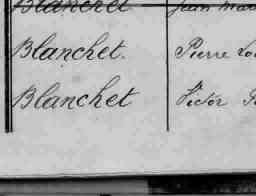 Blanchet Jean
Blanchet. Pierre
Blanchet Victor